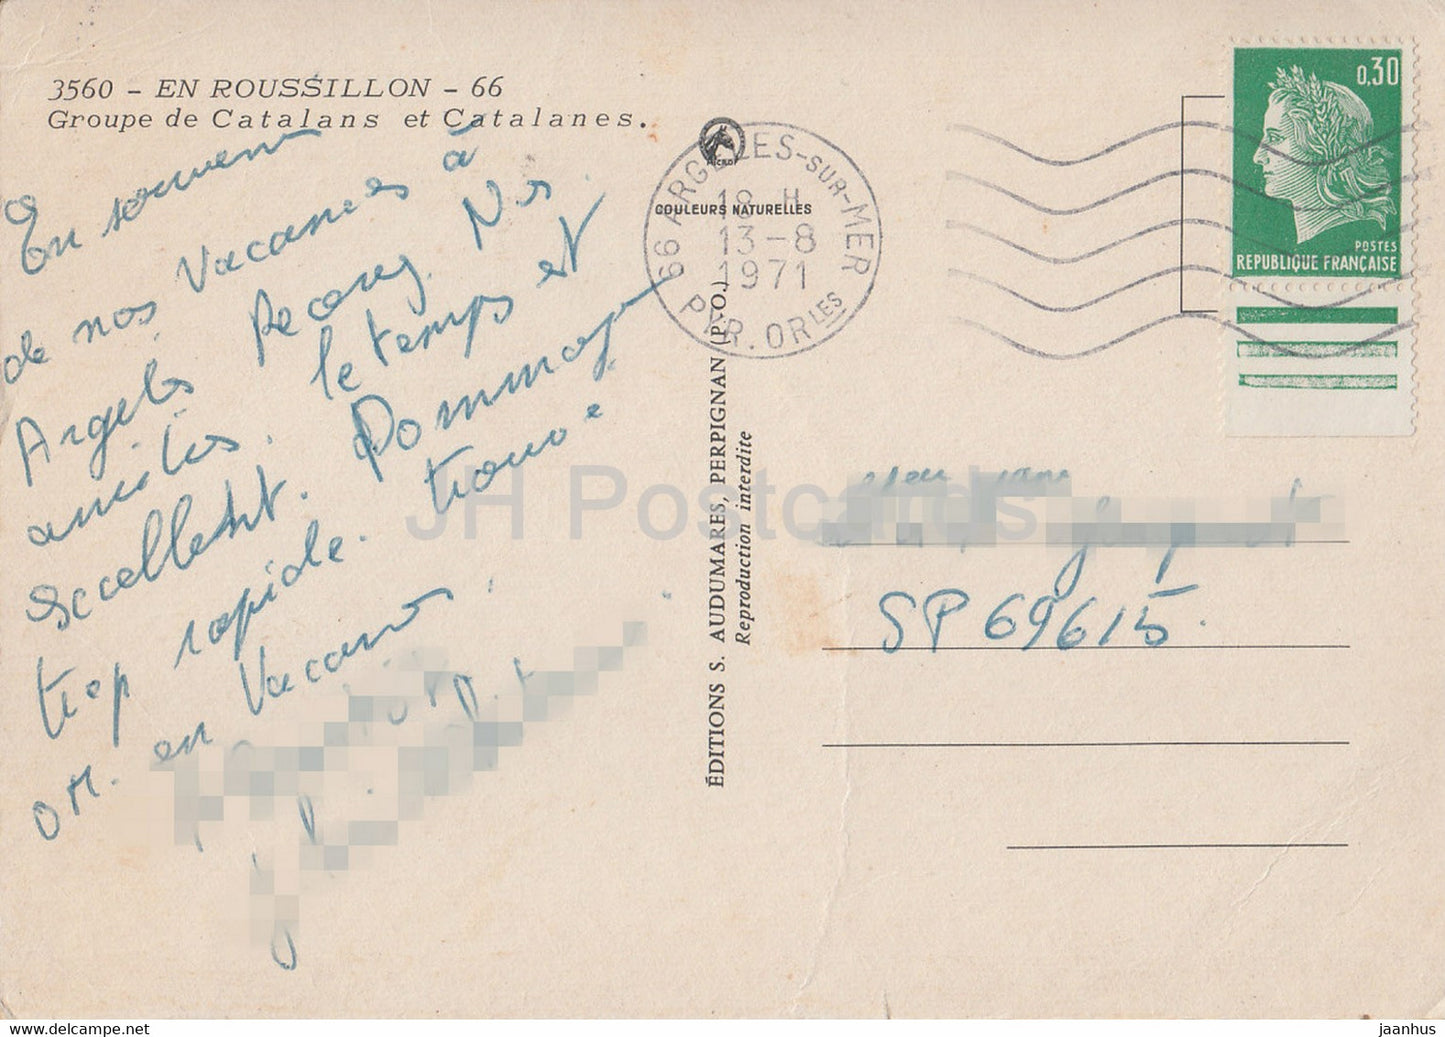 3560 - EN ROUSSILLON - 66
Groupe de Catalans et Catalanes.
En souvenir
de nos Vacances à
Argelès recevez Nos
amitiés. le temps est
excellent. Dommage
trop rapide.
on en Vacances.
COULEURS NATURELLES
66 ARGELES-SUR-MER
18 H
13-8
1971
PYR. ORLES
ÉDITIONS S. AUDUMARES, PERPIGNAN (P.-O.)
Reproduction interdite
0,30
POSTES
REPUBLIQUE FRANÇAISE
SP 69615.
JH Postcards
https://www.hippostcard.com
jaanhus